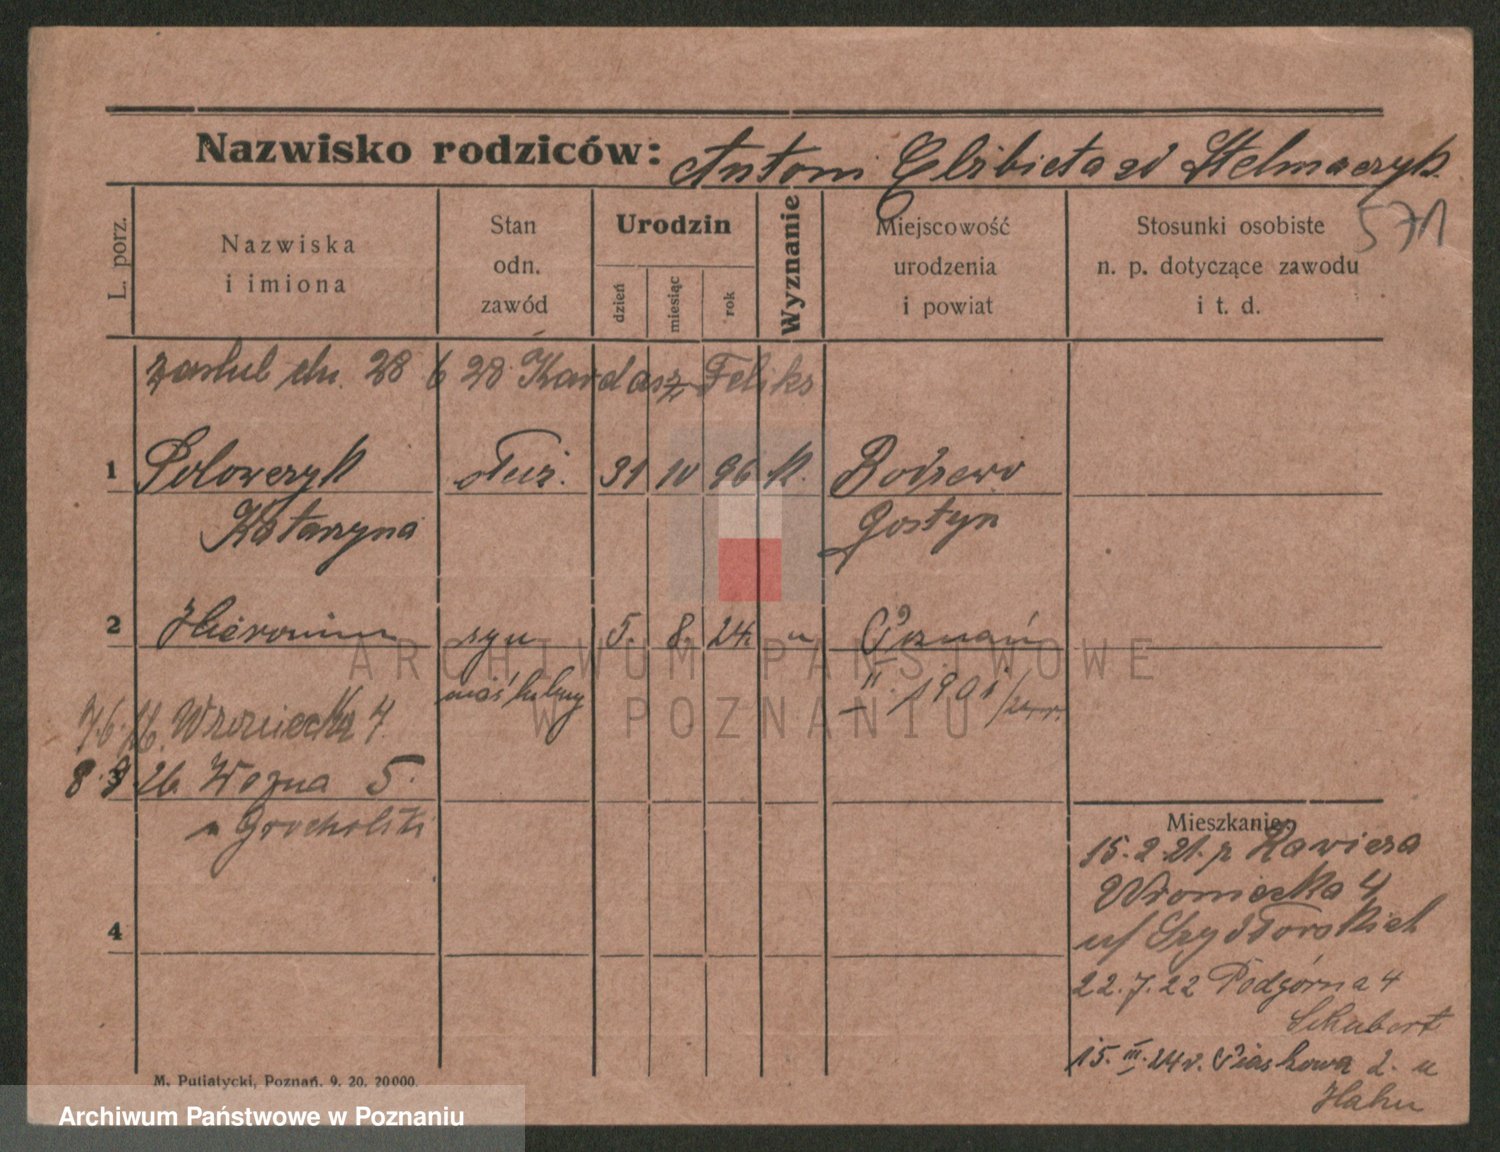 Nazwisko rodziców: Antoni Elżbieta zd Stelmaczyk
571
L. porz.
Nazwiska i imiona
Stan odn. zawód
Urodzin
dzień
miesiąc
rok
Wyznanie
Miejscowość urodzenia i powiat
Stosunki osobiste n. p. dotyczące zawodu i t. d.
28 6 28 Kardasz Feliks
1 Polowczyk służ. 31 10 96 k. Bodzewo
Katarzyna Gostyn
2 Hieronim syn 5. 8. 24. " Poznań
nieślubny
II. 1901
7.6. 26. Wroniecka 4.
8.9 26. Wozna 5.
3
u Grocholski
4
Mieszkanie:
15.2.21. p Xawiera
Wroniecka 4
u/ Szydłorskich
22.7.22 Podgórna 4
Schubert
15.III.24 r. Piaskowa 2. u
Hahn
M. Putiatycki, Poznań. 9. 20. 20000.
ARCHIWUM PAŃSTWOWE
W POZNANIU
Archiwum Państwowe w Poznaniu